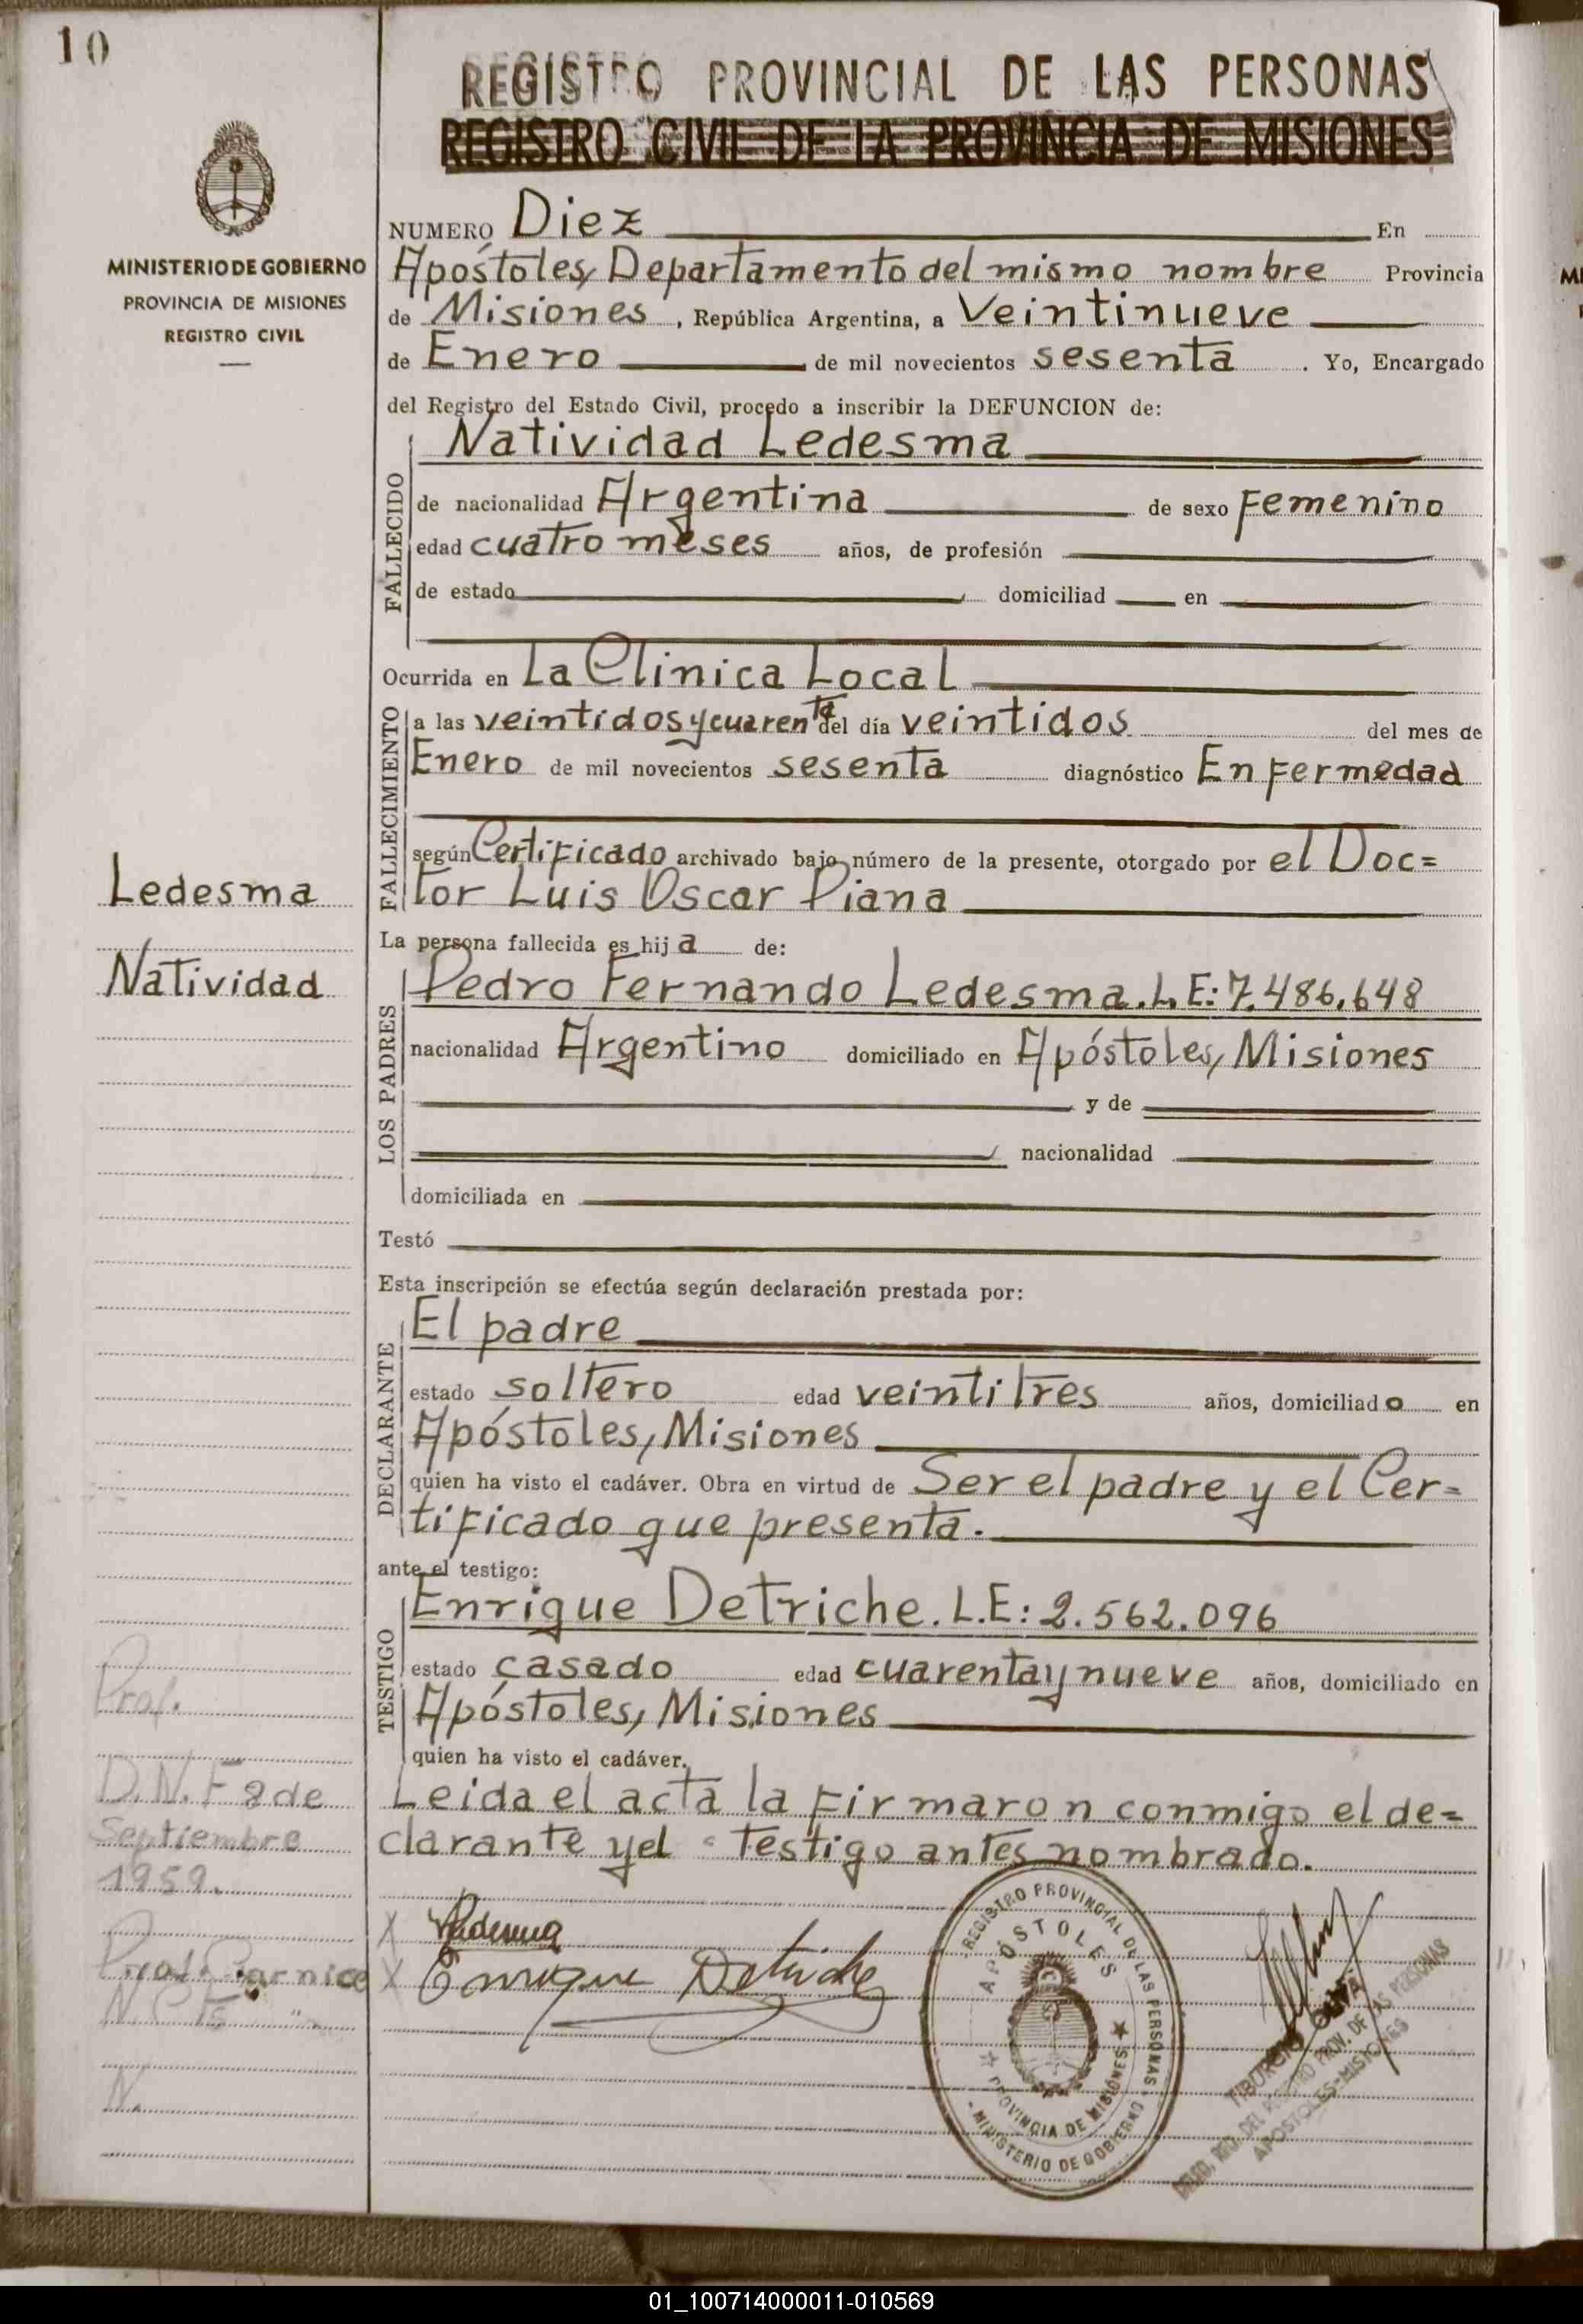 10
REGISTRO PROVINCIAL DE LAS PERSONAS
REGISTRO CIVIL DE LA PROVINCIA DE MISIONES
MINISTERIO DE GOBIERNO
PROVINCIA DE MISIONES
REGISTRO CIVIL
NUMERO Diez En
Apóstoles, Departamento del mismo nombre Provincia
de Misiones, República Argentina, a Veintinueve
de Enero de mil novecientos sesenta. Yo, Encargado
del Registro del Estado Civil, procedo a inscribir la DEFUNCION de:
FALLECIDO
Natividad Ledesma
de nacionalidad Argentina de sexo Femenino
edad cuatro meses años, de profesión
de estado domiciliad en
Ocurrida en La Clinica Local
FALLECIMIENTO
a las veintidos y cuarenta del día veintidos del mes de
Enero de mil novecientos sesenta diagnóstico Enfermedad
según Certificado archivado bajo número de la presente, otorgado por el Doc=
tor Luis Oscar Piana
Ledesma
Natividad
La persona fallecida es hija de:
LOS PADRES
Pedro Fernando Ledesma. L.E: 7.486.648
nacionalidad Argentino domiciliado en Apóstoles, Misiones
y de
nacionalidad
domiciliada en
Testó
Esta inscripción se efectúa según declaración prestada por:
DECLARANTE
El padre
estado soltero edad veintitres años, domiciliado en
Apóstoles, Misiones
quien ha visto el cadáver. Obra en virtud de Ser el padre y el Cer=
tificado que presenta.
ante el testigo:
TESTIGO
Enrique Detriche. L.E: 2.562.096
estado casado edad cuarenta y nueve años, domiciliado en
Apóstoles, Misiones
quien ha visto el cadáver.
Leida el acta la firmaron conmigo el de=
clarante y el testigo antes nombrado.
Prof.
D.N. F 8 de
Septiembre
1959.
N.
X Ledesma
X Enrique Detriche
REGISTRO PROVINCIAL DE LAS PERSONAS
APÓSTOLES
PROVINCIA DE MISIONES
MINISTERIO DE GOBIERNO
TIBURCIO
DEL REGISTRO PROV. DE LAS PERSONAS
APOSTOLES-MISIONES
01_100714000011-010569